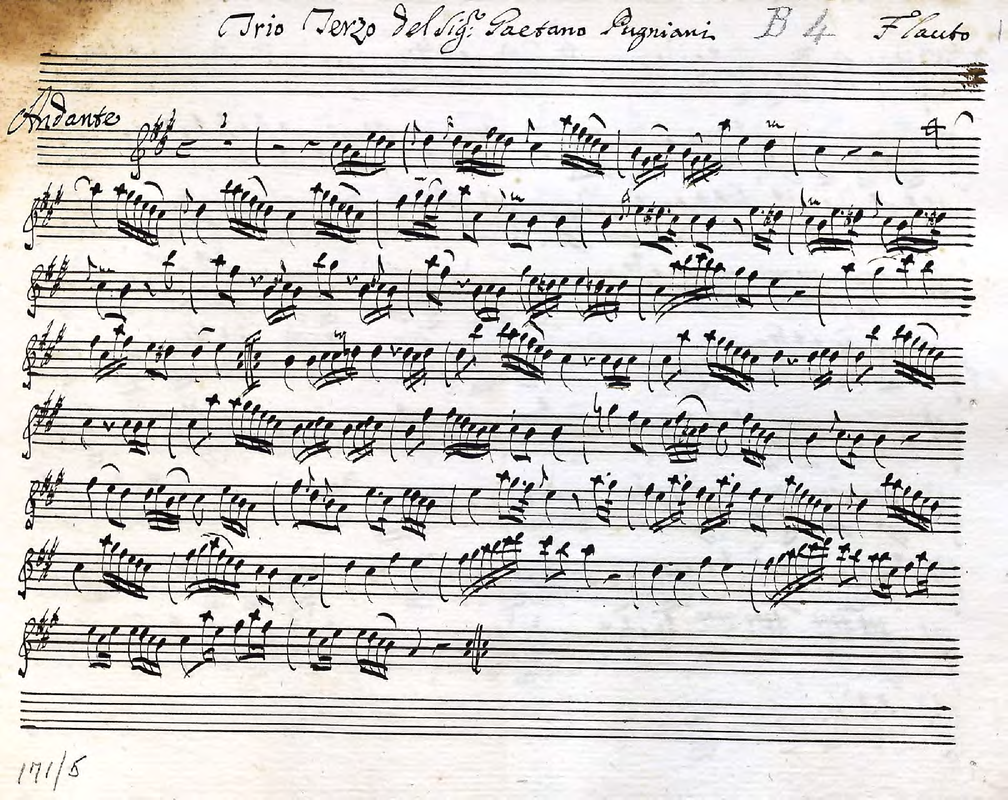 Trio Terzo del Sig.r Gaetano Pugniani B 4 Flauto
Andante
3
171/5